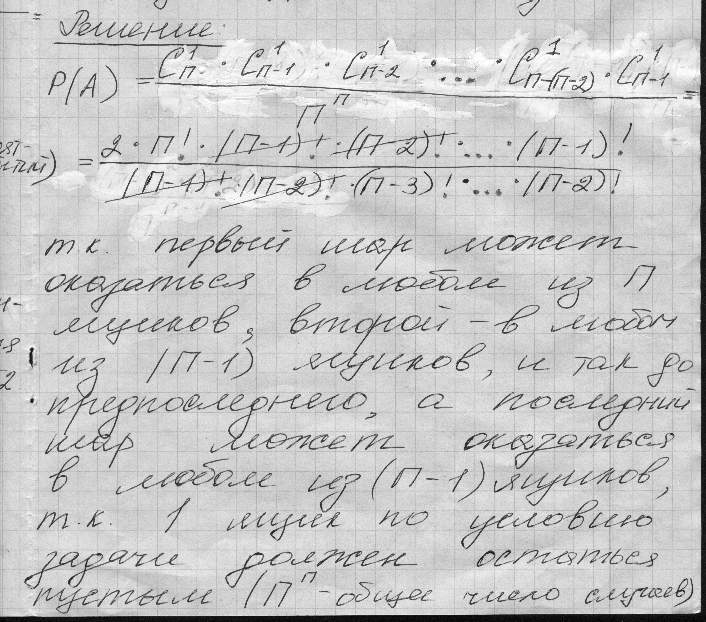 Решение:
P(A) = C¹ₙ · C¹ₙ₋₁ · C¹ₙ₋₂ · ... · C¹ₙ₋₍ₙ₋₂₎ · C¹ₙ₋₁ / nⁿ =
= 2 · n! · (n-1)! · (n-2)! · ... · (n-1)! / (n-1)! · (n-2)! · (n-3)! · ... · (n-2)!
т.к. первый шар может
оказаться в любом из n
ящиков, второй – в любом
из (n-1) ящиков, и так до
предпоследнего, а последний
шар может оказаться
в любом из (n-1) ящиков,
т.к. 1 ящик по условию
задачи должен остаться
пустым (nⁿ - общее число случаев)